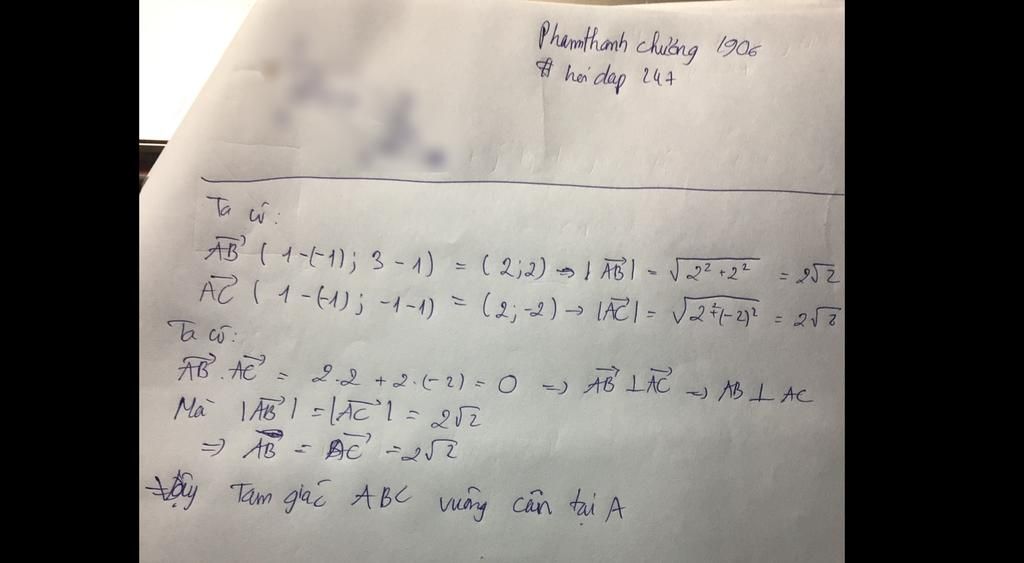 Phamthanh chường 1906
# hoi dap 247
Ta có:
$\overrightarrow{AB}$ ( 1-(-1); 3 - 1) = ( 2;2) → |$\overrightarrow{AB}$| = $\sqrt{2^2+2^2}$ = 2√2
$\overrightarrow{AC}$ ( 1-(-1); -1-1) = (2;-2) → |$\overrightarrow{AC}$| = $\sqrt{2^2+(-2)^2}$ = 2√2
Ta có:
$\overrightarrow{AB}$.$\overrightarrow{AC}$ = 2.2 + 2.(-2) = 0 => $\overrightarrow{AB}$ ⊥ $\overrightarrow{AC}$ => AB ⊥ AC
Mà |$\overrightarrow{AB}$| = |$\overrightarrow{AC}$| = 2√2
=> AB = $\overrightarrow{AC}$ = 2√2
Vậy Tam giác ABC vuông cân tại A